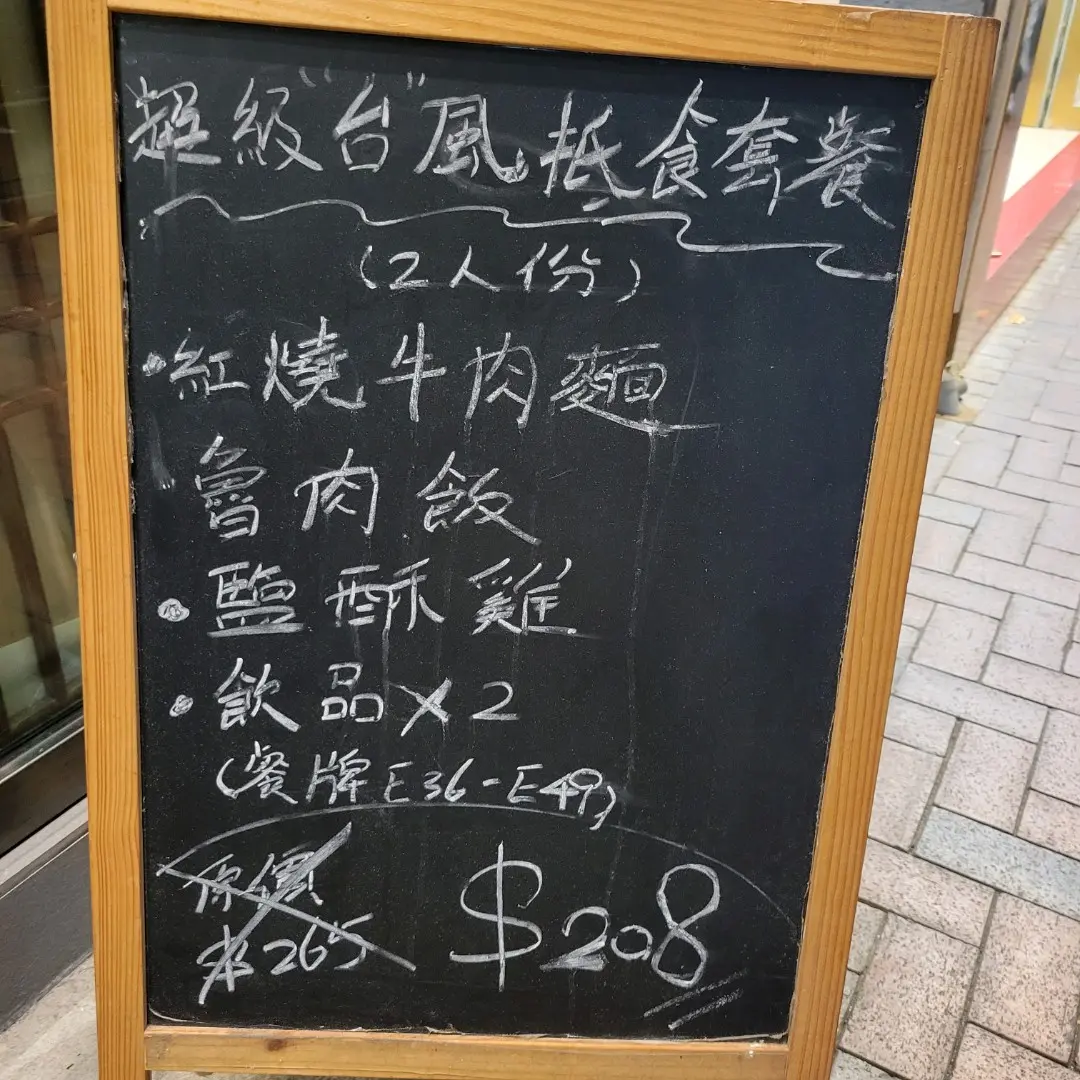 超級"台"風抵食套餐
(2人份)
• 紅燒牛肉麵
魯肉飯
• 鹽酥雞
• 飲品 x 2
(餐牌 E36-E49)
原價
$265
$208